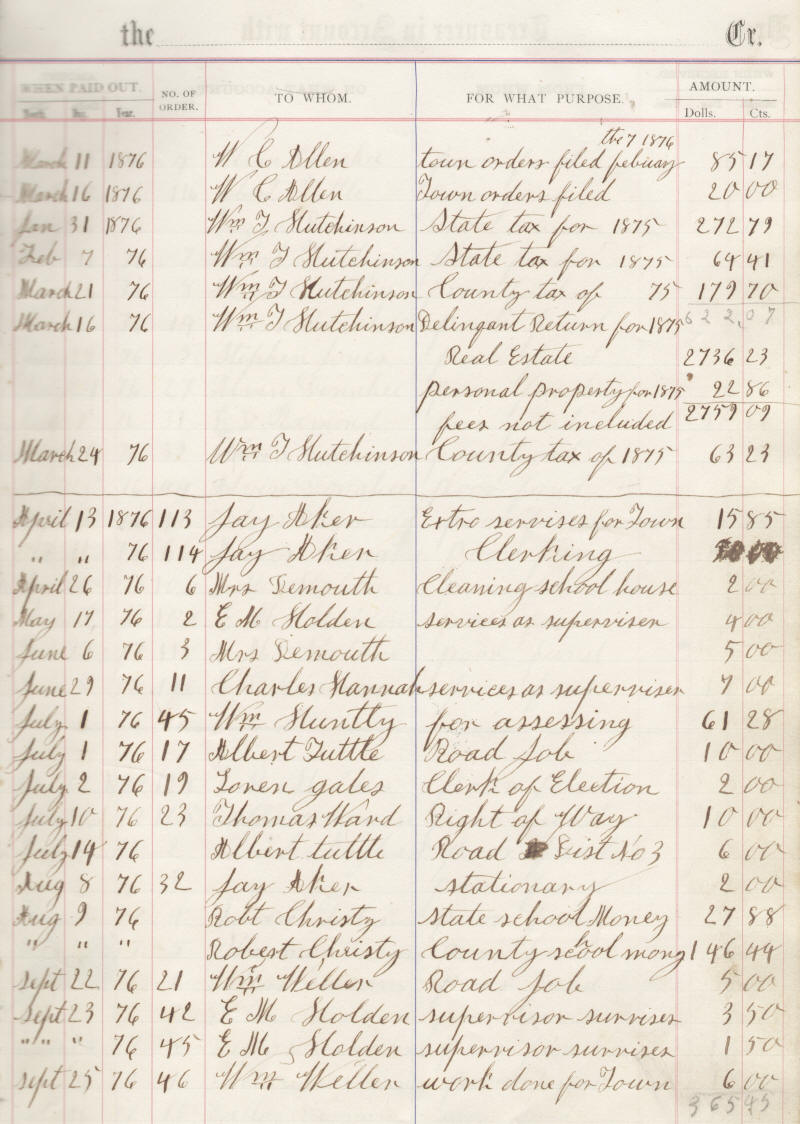 the Cr.
WHEN PAID OUT. NO. OF ORDER. TO WHOM. FOR WHAT PURPOSE. AMOUNT.
Month. Day. Year. Dolls. Cts.
the 7 1876
March 11 1876 W C Allen town orders filed febuary 85 17
March 16 1876 W C Allen Town orders filed 20 00
Jan 31 1876 Wm T Hutchinson State tax for 1875 272 79
Feb 7 76 Wm T Hutchinson State tax for 1875 64 41
March 21 76 Wm T Hutchinson County tax of 75 179 70
March 16 76 Wm T Hutchinson Delinqant Return for 1875 622,07
Real Estate 2736 23
personal property for 1875 22 86
fees not included 2759 09
March 24 76 Wm T Hutchinson County tax of 1875 63 23
April 13 1876 113 Jay Aker Extro servises for Town 15 85
" " 76 114 Jay Aker Clerking
April 26 76 6 Mrs Demouth Cleaning school house 2 00
May 17 76 2 E M Holden services as superviser 4 00
June 6 76 3 Mrs Demouth 5 00
June 29 76 11 Charles Hannah services as superviser 7 00
July 1 76 45 Wm Huntly for assessing 61 28
July 1 76 17 Albert Tuttle Road Job 10 00
July 2 76 19 Loren gales Clerk of Election 2 00
July 10 76 23 Thomas Ward Right of Way 10 00
July 14 76 Albert tuttle Road Dist No 3 6 00
Aug 8 76 32 Jay Aker stationary 2 00
Aug 9 76 Robt Christy state school Money 27 88
" " " Robert Christy County school mony 146 44
sept 22 76 21 Wm Weller Road Job 5 00
sept 23 76 42 E M Holden supervisor survises 3 50
" " " 76 45 E M Holden supervisor survises 1 50
sept 25 76 46 Wm Weller work done for Town 6 00
365 45